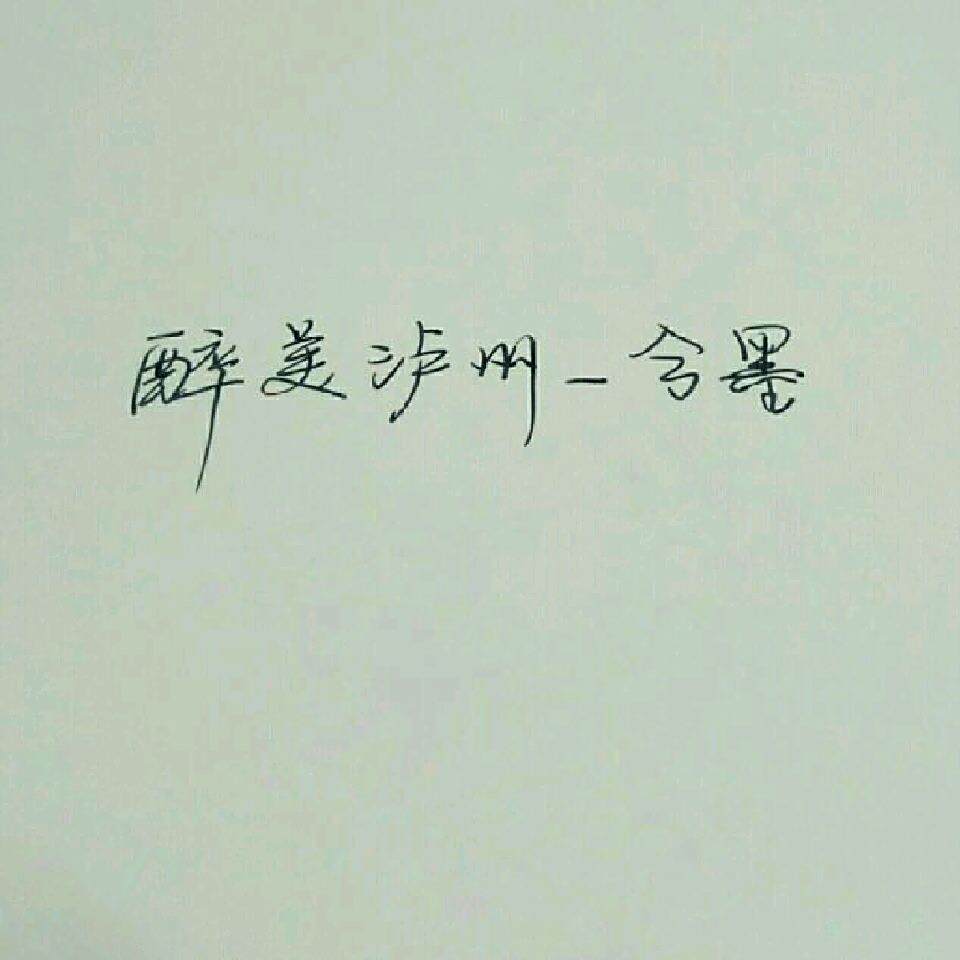 醉美泸州_令墨